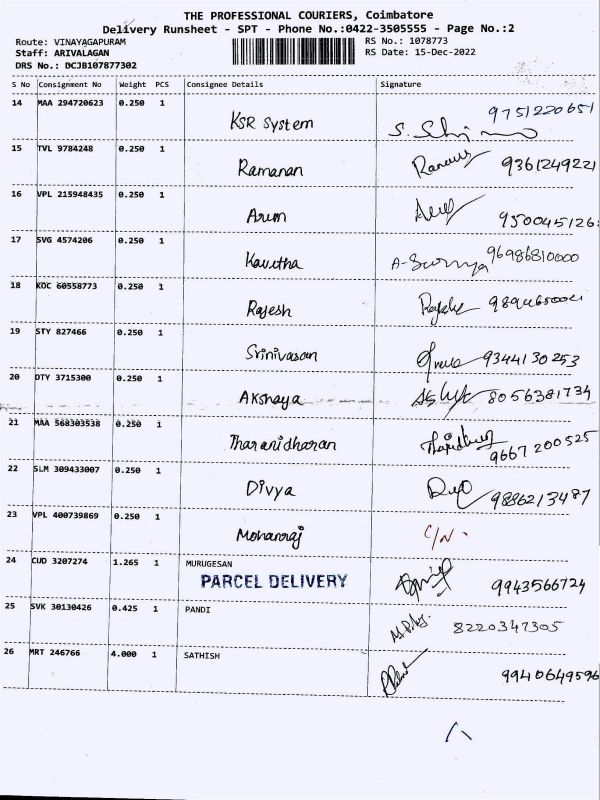 THE PROFESSIONAL COURIERS, Coimbatore
Delivery Runsheet - SPT - Phone No.:0422-3505555 - Page No.:2
Route: VINAYAGAPURAM RS No.: 1078773
Staff: ARIVALAGAN RS Date: 15-Dec-2022
DRS No.: DCJB107877302
S No Consignment No Weight PCS Consignee Details Signature
14 MAA 294720623 0.250 1 KSR System 9751220651
15 TVL 9784248 0.250 1 Ramanan 9361249221
16 VPL 215948435 0.250 1 Arum 950045126
17 SVG 4574206 0.250 1 Kavitha A-Surriya
18 KOC 60558773 0.250 1 Rajesh
19 STY 827466 0.250 1 Srinivasan 9344130253
20 DTY 3715300 0.250 1 Akshaya 8056381734
21 MAA 568303538 0.250 1 Tharanidharan 9667200525
22 SLM 309433007 0.250 1 Divya 9886213487
23 VPL 400739869 0.250 1 Mohanraj C/N.
24 CUD 3207274 1.265 1 MURUGESAN
PARCEL DELIVERY 9943566724
25 SVK 30130426 0.425 1 PANDI 8220347305
26 MRT 246766 4.000 1 SATHISH 9940649596